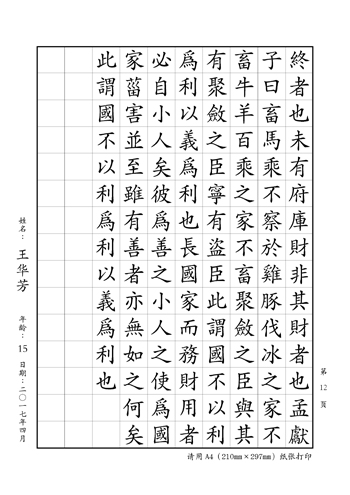 終者也未有府庫財非其財者也孟獻
子曰畜馬乘不察於雞豚伐冰之家不
畜牛羊百乘之家不畜聚斂之臣與其
有聚斂之臣寧有盜臣此謂國不以利
爲利以義爲利也長國家而務財用者
必自小人矣彼爲善之小人之使爲國
家菑害並至雖有善者亦無如之何矣
此謂國不以利爲利以義爲利也
姓名：王华芳 年龄：15 日期：二〇一七年四月
第 12 页
请用 A4（210mm×297mm）纸张打印